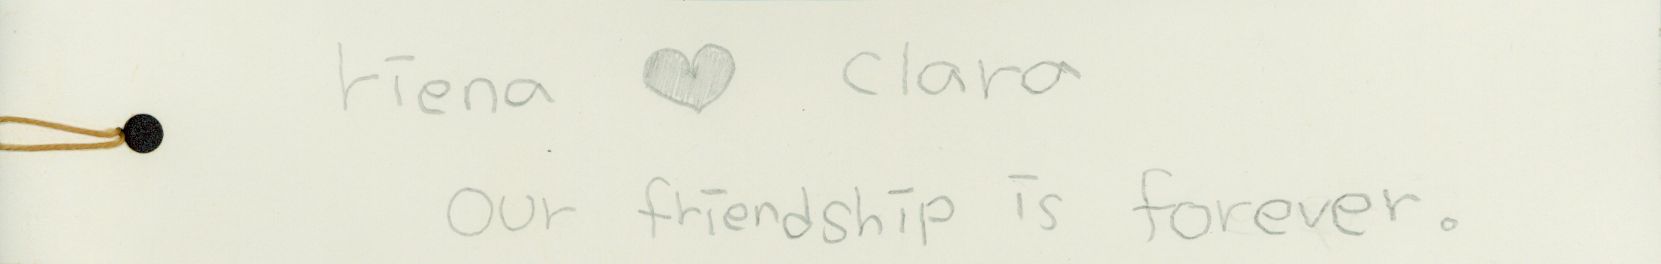 riena ♥ clara
our friendship is forever.